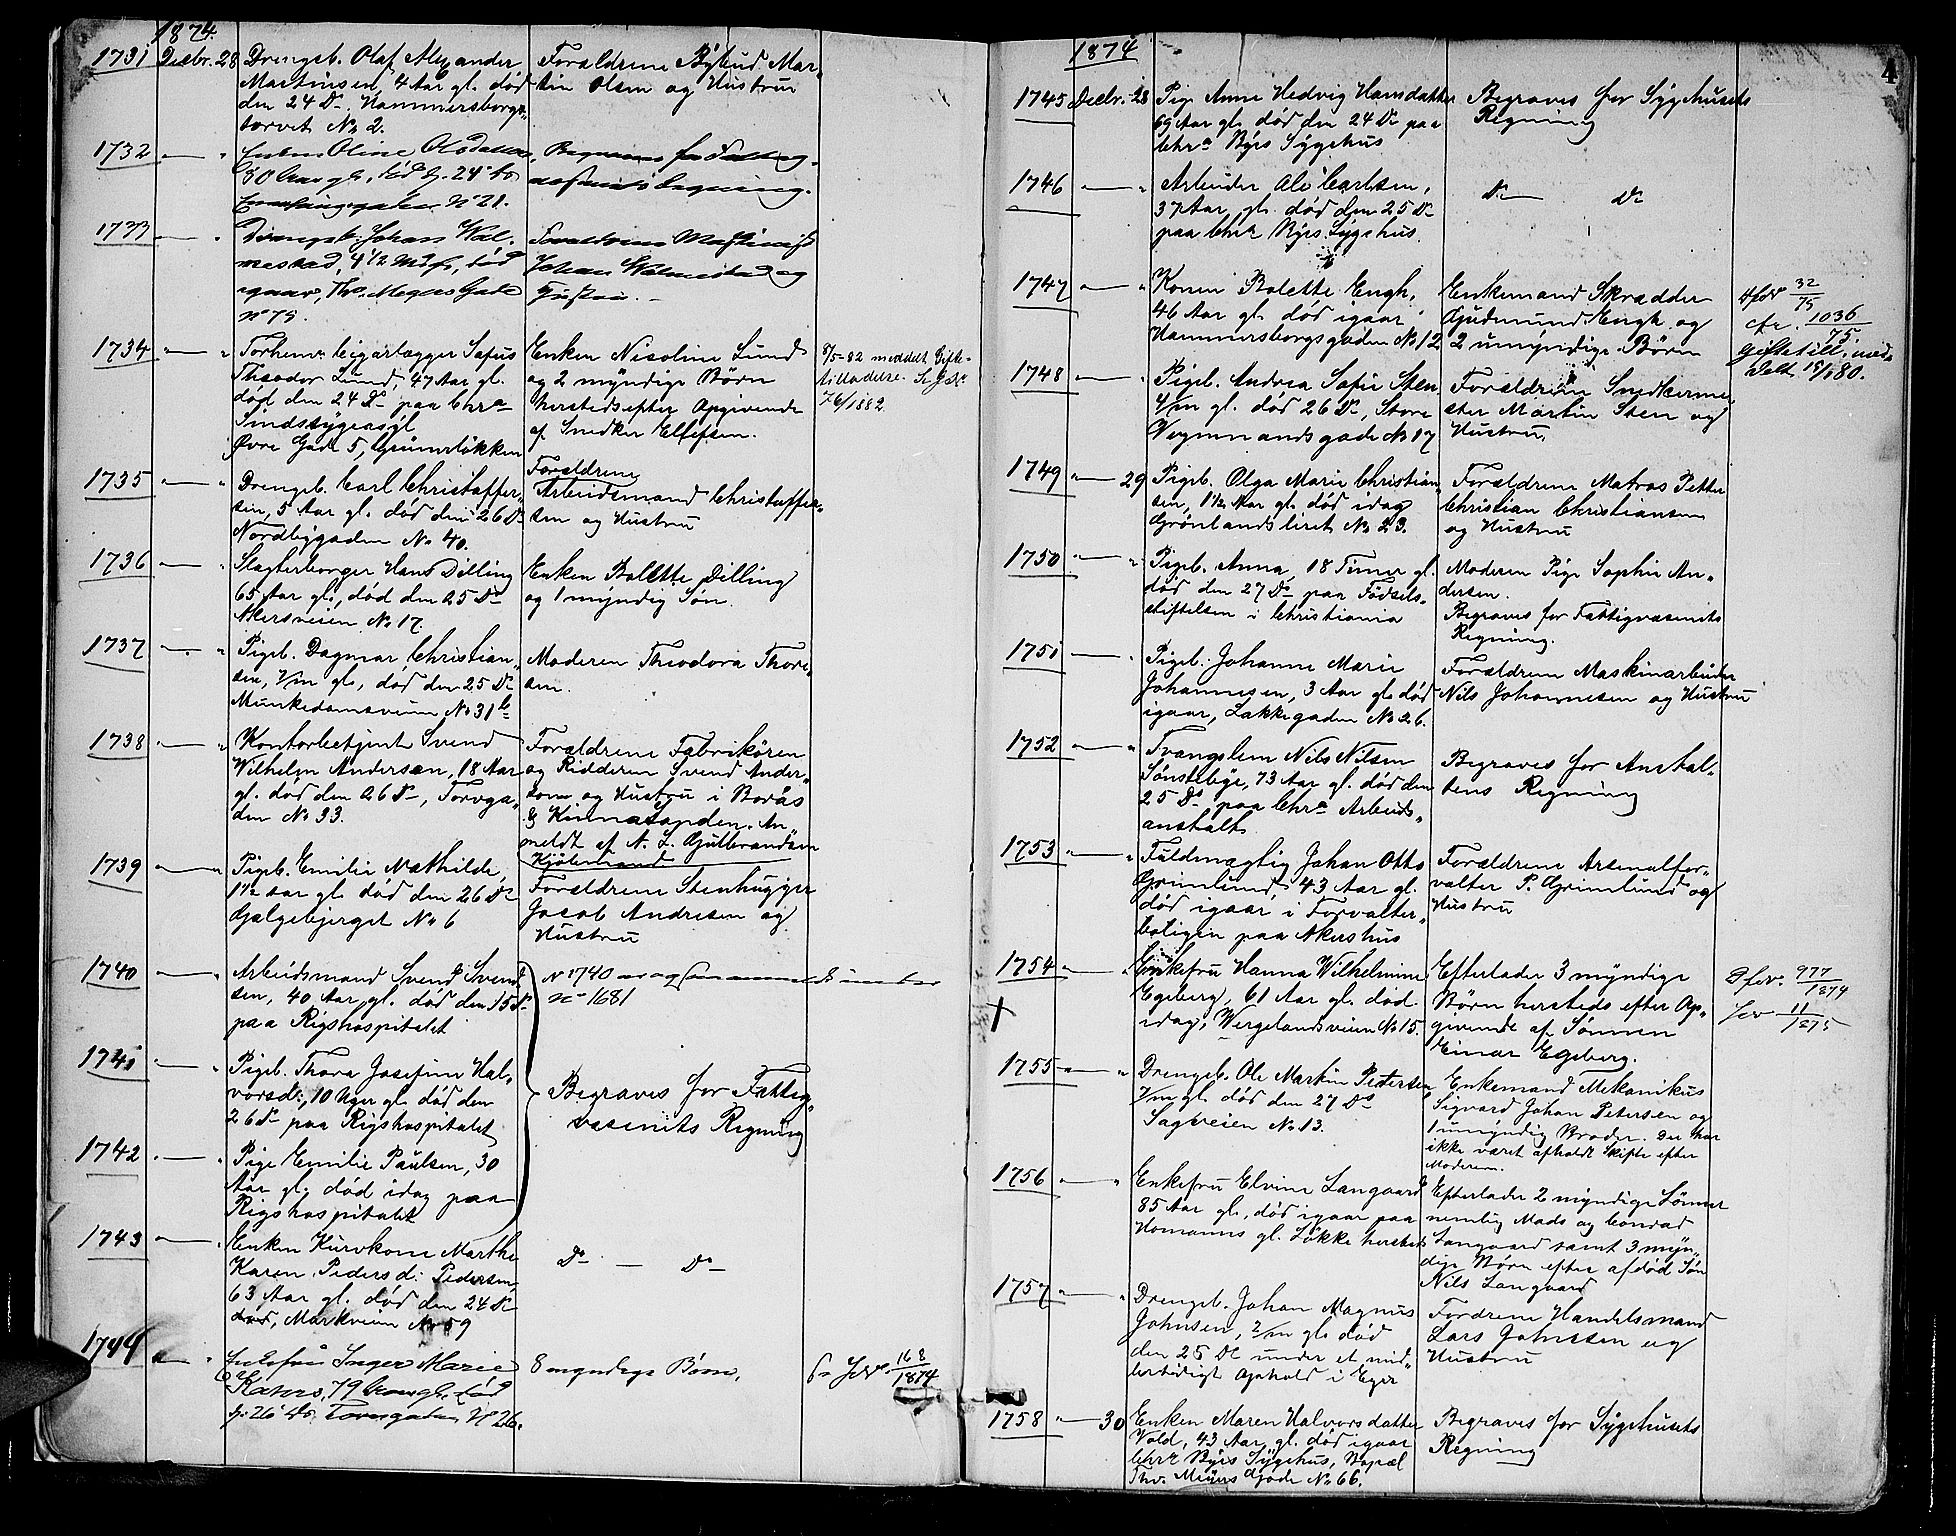 1874.
1731 Decbr. 28 Drengeb. Olaf Alexander
Martinsen, 4 Aar gl. død
den 24 Ds. Hammersborg-
torvet No 2.
Forældrene Bybud Mar-
tin Olsen og Hustru
1732 — " Enken Oline Olsdatter
80 Aar gl., død d. 24 ds
No 21.
Begraves for Fattig-
væsenets Regning.
1733 — " Drengeb. Johan Wal-
mestad, 4 1/2 Md. gl., død
igaar, Thv. Meyers Gade
No 75.
Forældrene Maskinist
Johan Walmestad og
Hustru.
1734 — " Forhenv. Cigarlægger Sofus
Theodor Lund, 47 Aar gl.
død den 24 Ds paa Chra
Sindssygeasyl
Øvre Gade 5, Grünerløkken
Enken Nicoline Lund
og 2 myndige Børn
herstedsefter Opgivende
af Snedker Ellefsen.
8/5-82 meddelt Gifte-
tilladelse.
76/1882.
1735 — " Drengeb. Carl Christoffer-
sen, 5 Aar gl. død den 26 Ds
Nordbygaden No 40.
Forældrene
Arbeidsmand Christoffer-
sen og Hustru
1736 — " Slagterborger Hans Dilling
65 Aar gl., død den 25 Ds
Akersveien No 17.
Enken Bolette Dilling
og 1 myndig Søn.
1737 — " Pigeb. Dagmar Christian-
sen, 7/m gl., død den 25 Ds
Munkedamsveien No 31 b
Moderen Theodora Thore-
sen.
1738 — " Kontorbetjent Svend
Wilhelm Andersen, 18 Aar
gl. død den 26 Ds, Torvga-
den No 33.
Forældrene Fabrikøren
og Ridderen Svend Ander-
son og Hustru i Borås
& Kinnasanden. An-
meldt af A. L. Gulbrandsen
Kjøbmand
1739 — " Pigeb. Emilie Mathilde,
1 1/2 Aar gl. død den 26 Ds
Galgebjerget No 6
Forældrene Stenhugger
Jacob Andresen og
Hustru
1740 — " Arbeidsmand Svend Svend-
sen, 40 Aar gl. død den 15 Ds
paa Rigshospitalet
No 1740 er ogsaa anmeldt under
No 1681
1741 — " Pigeb. Thora Josefine Hal-
vorsdt:, 10 Uger gl. død den
26 Ds paa Rigshospitalet
Begraves for Fattig-
væsenets Regning
1742 — " Pige Emilie Paulsen, 30
Aar gl. død idag paa
Rigshospitalet
1743 — " Enken Kurvkone Marthe
Karen Pedersd: Pedersen
63 Aar gl. død den 24 Ds
død, Markveien No 59
Ds — Ds
1744 — " Enkefru Inger Marie
79 Aar gl. død
d. 26 ds. Torvegaden No 26.
8 myndige Børn.
168/1874
1874
4
1745 Decbr. 28 Pige Anne Hedvig Hansdatter
69 Aar gl. død den 24 Ds paa
Chra Byes Sygehus
Begraves for Sygehusets
Regning
1746 — " Arbeider Ole Carlsen,
37 Aar gl. død den 25 Ds
paa Chra Byes Sygehus.
Ds — Ds
1747 — " Konen Bolette Engh,
46 Aar gl. død igaar
Hammersborgsgaden No 12
Enkemand Skrædder
Gudmund Engh og
2 umyndige Børn
32/75
cfr. 1036/75.
Giftetill. med-
delt 18/1 80.
1748 — " Pigeb. Andrea Sofie Sten
4/m gl. død 26 Ds, Store
Vognmandsgade No 17
Forældrene Snedkerme-
ster Martin Sten og
Hustru.
1749 — 29 Pigeb. Olga Marie Christian-
sen, 1 1/2 Aar gl. død idag
Grønlandsleret No 23.
Forældrene Matros Petter
Christian Christiansen
og Hustru
1750 — " Pigeb. Anna, 18 Timer gl.
død den 27 Ds paa Fødsels-
stiftelsen i Christiania
Moderen Pige Sophie An-
dersen.
Begraves for Fattigvæsenets
Regning.
1751 — " Pigeb. Johanne Marie
Johannesen, 3 Aar gl. død
igaar, Lakkegaden No 26.
Forældrene Maskinarbeider
Nils Johannesen og Hustru
1752 — " Tvangslem Nils Nilsen
Sønsteby, 73 Aar gl. død den
25 Ds paa Chra Arbeids-
anstalt
Begraves for Anstal-
tens Regning
1753 — " Fuldmægtig Johan Otto
Grimlund, 43 Aar gl.
død igaar i Forvalter-
boligen paa Akershus
Forældrene Arsenalfor-
valter P. Grimlund og
Hustru
1754 — " Enkefru Hanna Wilhelmine
Egeberg, 61 Aar gl. død
idag, Wergelandsveien No 15.
Efterlader 3 myndige
Børn hersteds efter Op-
givende af Sønnen
Einar Egeberg.
977/1874
11/1875
1755 — " Drengeb. Ole Martin Petersen
7/m gl. død den 27 Ds
Sagveien No 13.
Enkemand Mekanikus
Sigvard Johan Petersen og
1 umyndig Broder. Der har
ikke været afholdt Skifte efter
Moderen.
1756 — " Enkefru Elvine Langaard
85 Aar gl., død igaar paa
Homanns gl. Løkke hersteds
Efterlader 2 myndige Sønner
nemlig Mads og Conrad
Langaard samt 3 myn-
dige Børn efter afdød Søn
Nils Langaard
1757 — " Drengeb. Johan Magnus
Johnsen, 2/m gl. død
den 25 Ds under et mid-
lertidigt Ophold i Eger
Fordrene Handelsmand
Lars Johnsen og
Hustru
1758 — 30 Enken Maren Halvorsdatter
Vold, 43 Aar gl. død igaar
Chra Byes Sygehus, Bopæl
Thv. Meyers Gade No 66.
Begraves for Sygehusets
Regning